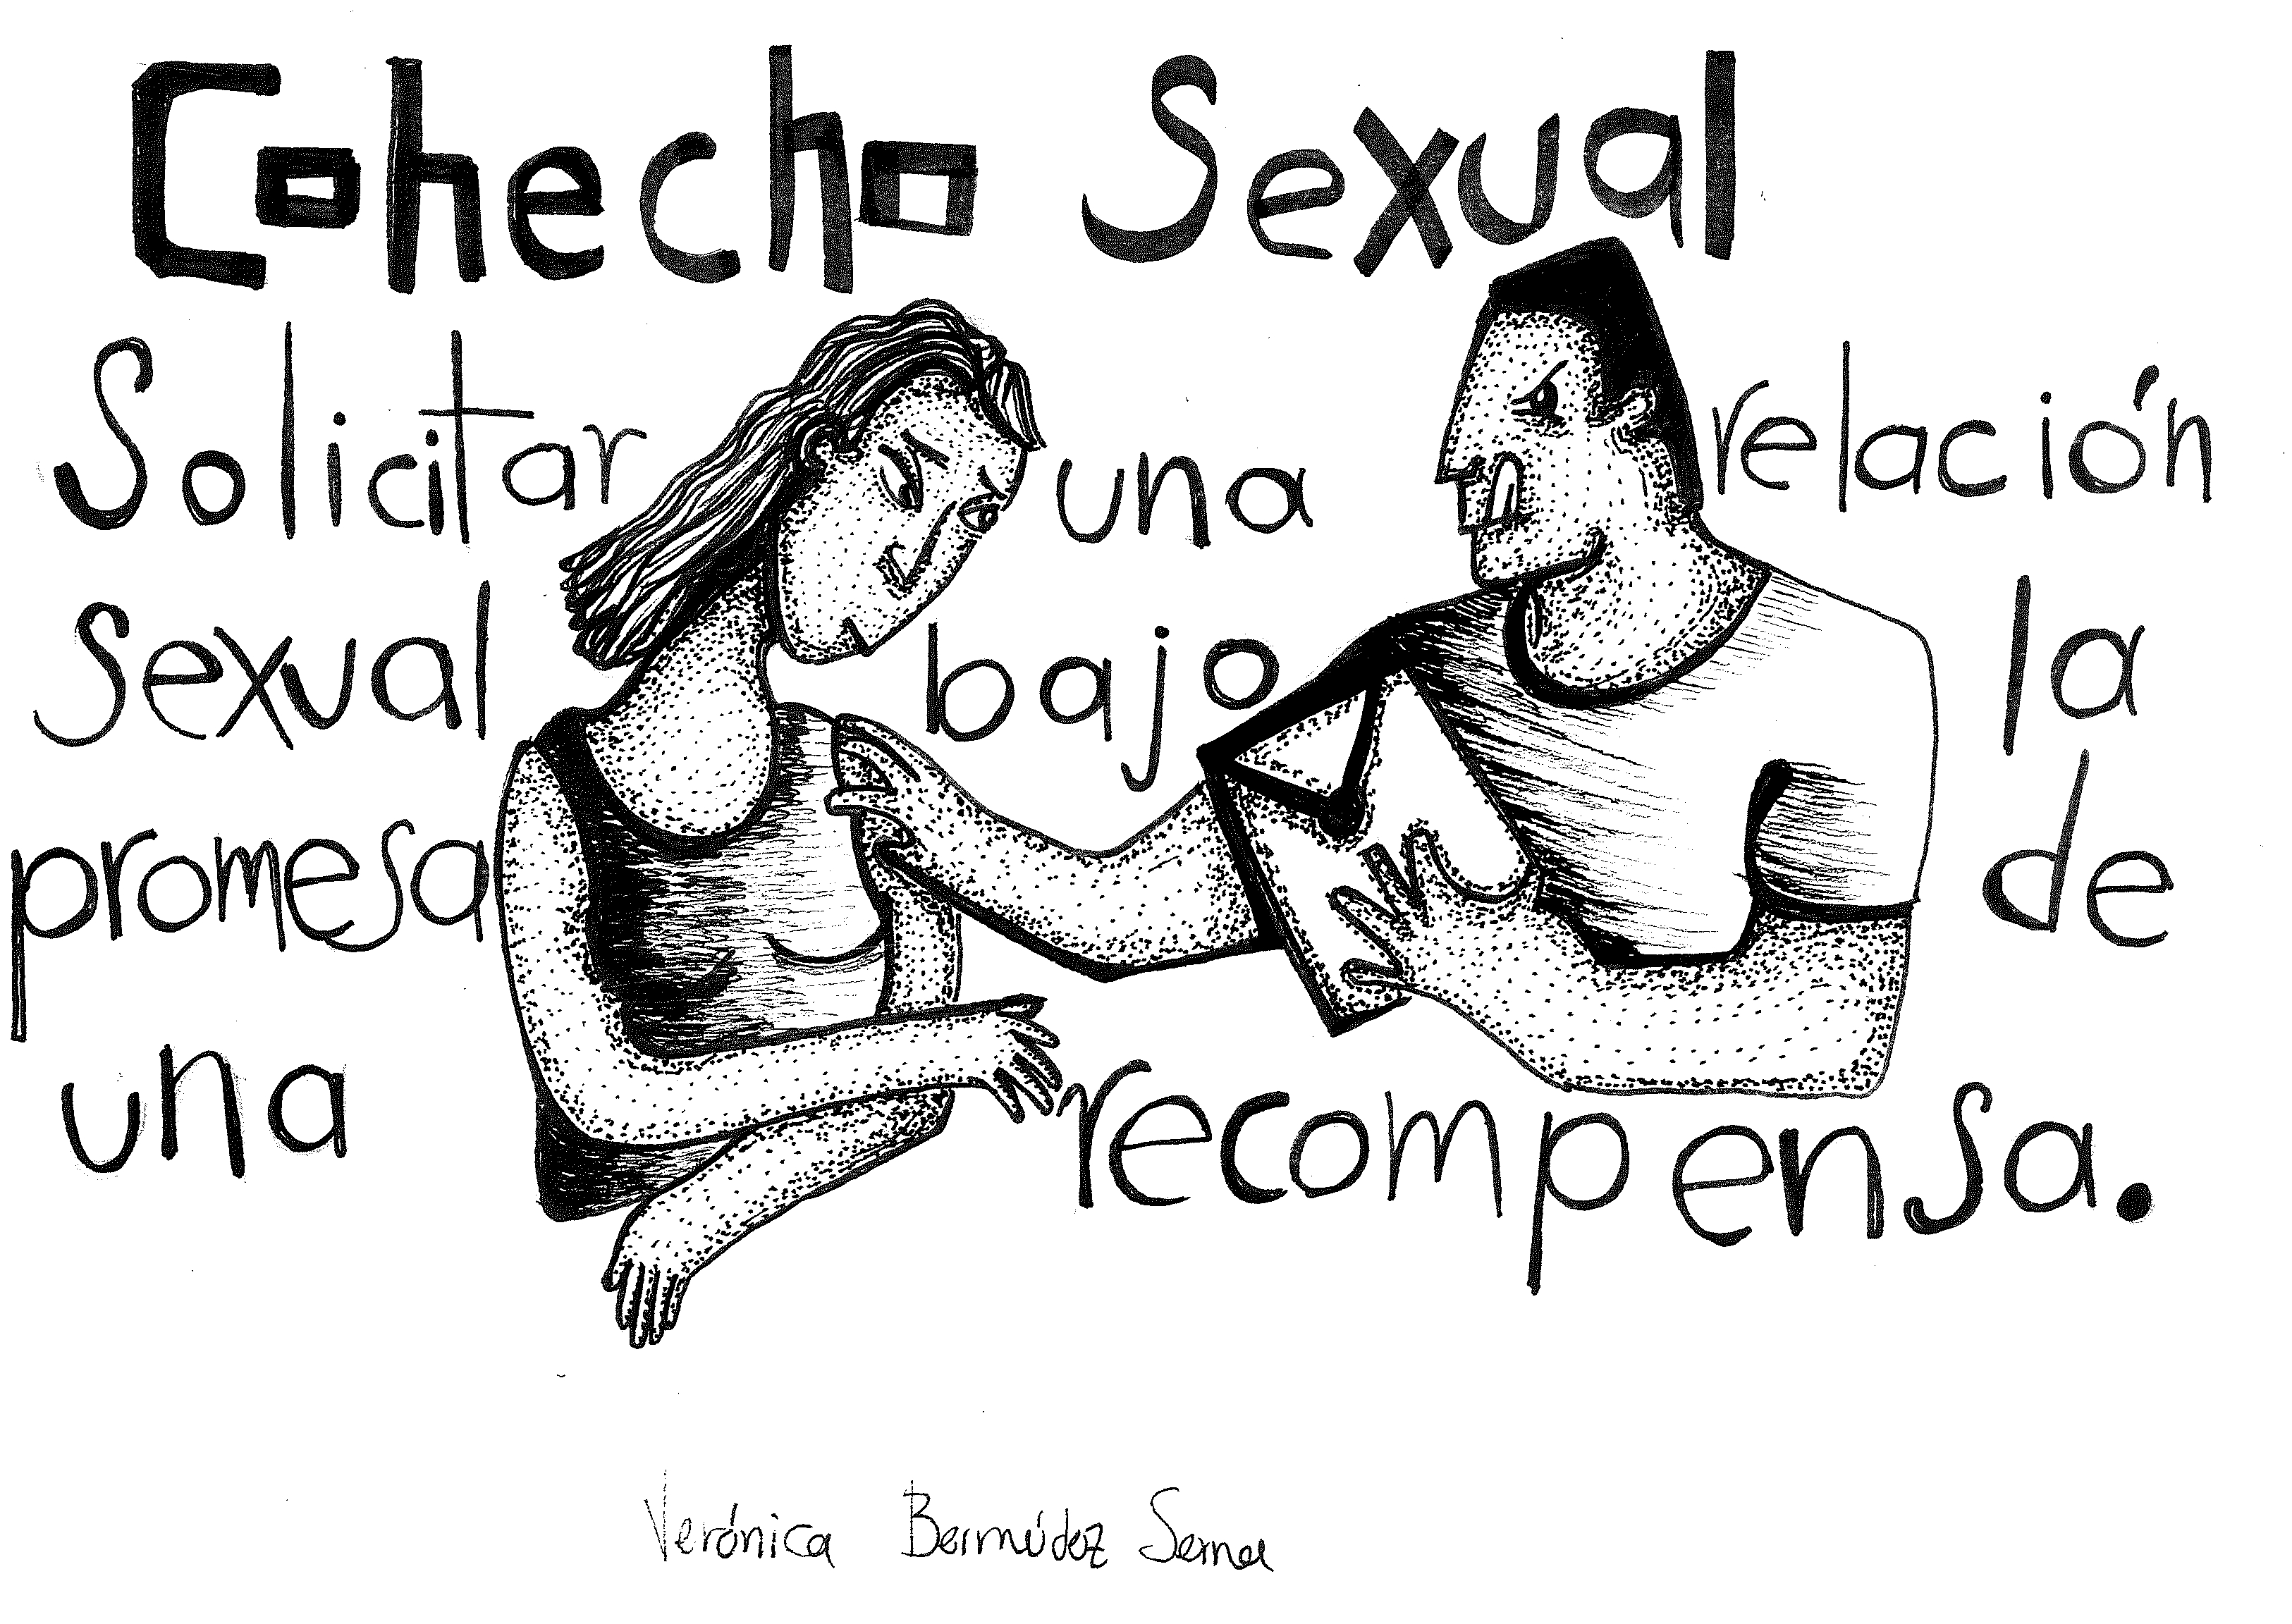 Cohecho Sexual
Solicitar una relación
sexual bajo la
promesa de
una recompensa.
Verónica Bermúdez Serna